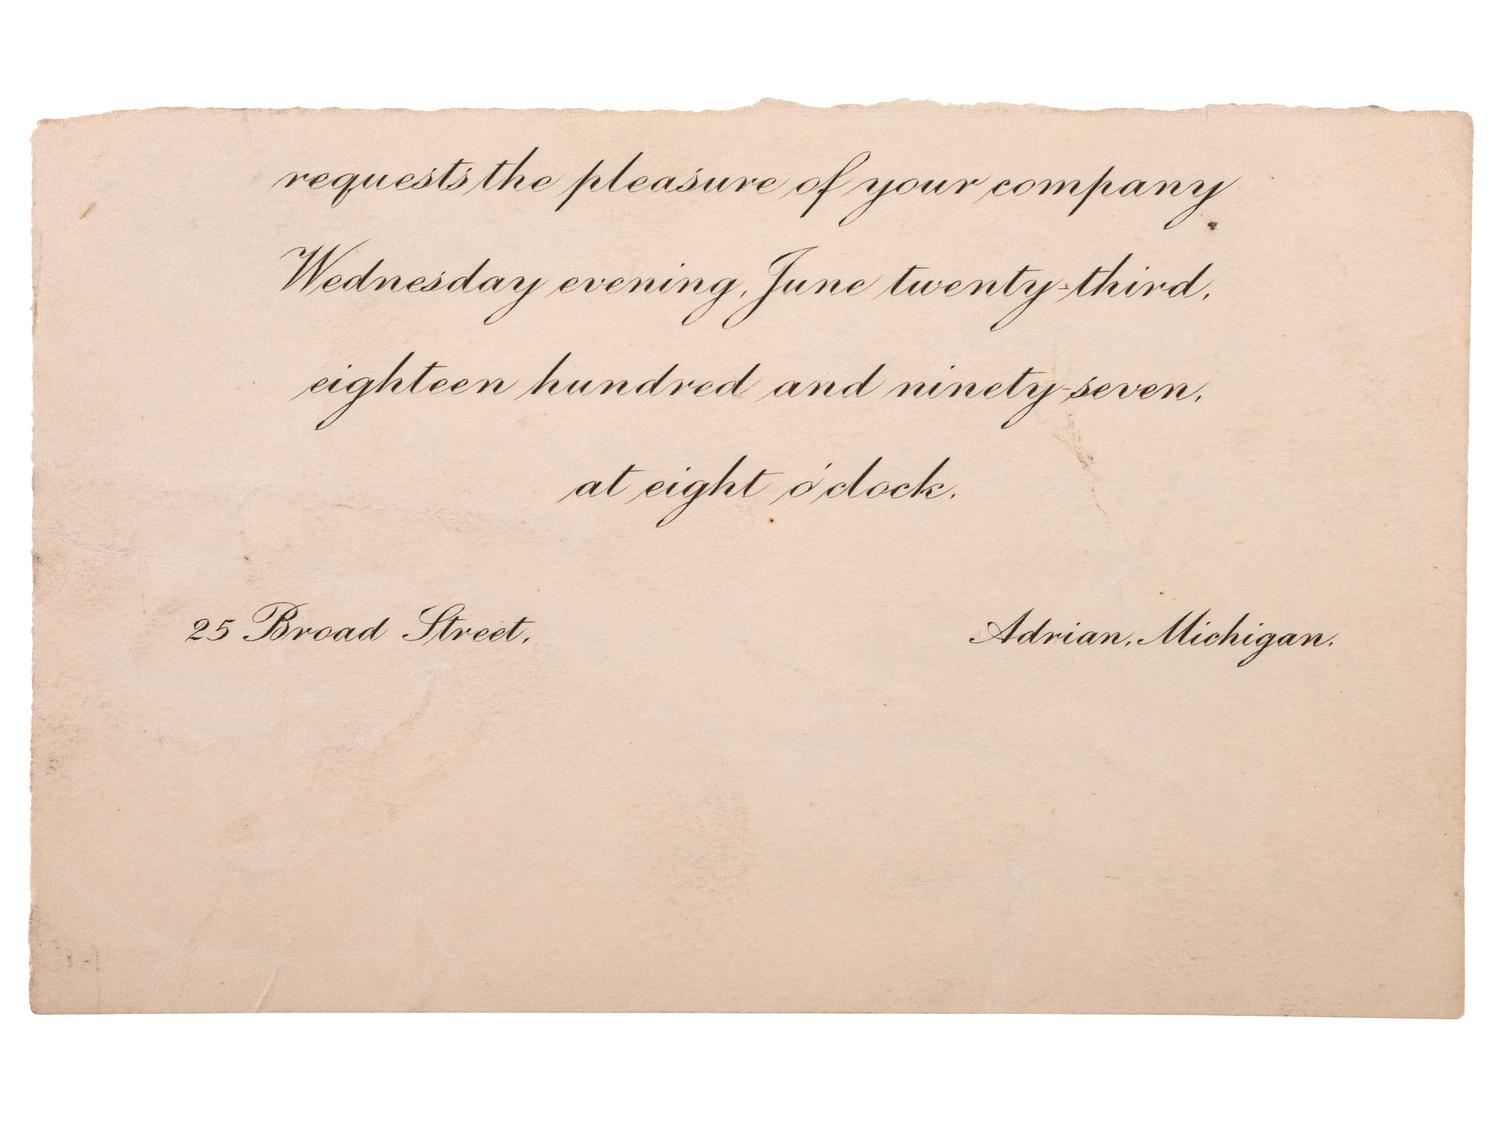 requests the pleasure of your company
Wednesday evening, June twenty-third,
eighteen hundred and ninety-seven,
at eight o'clock.
25 Broad Street,
Adrian, Michigan.